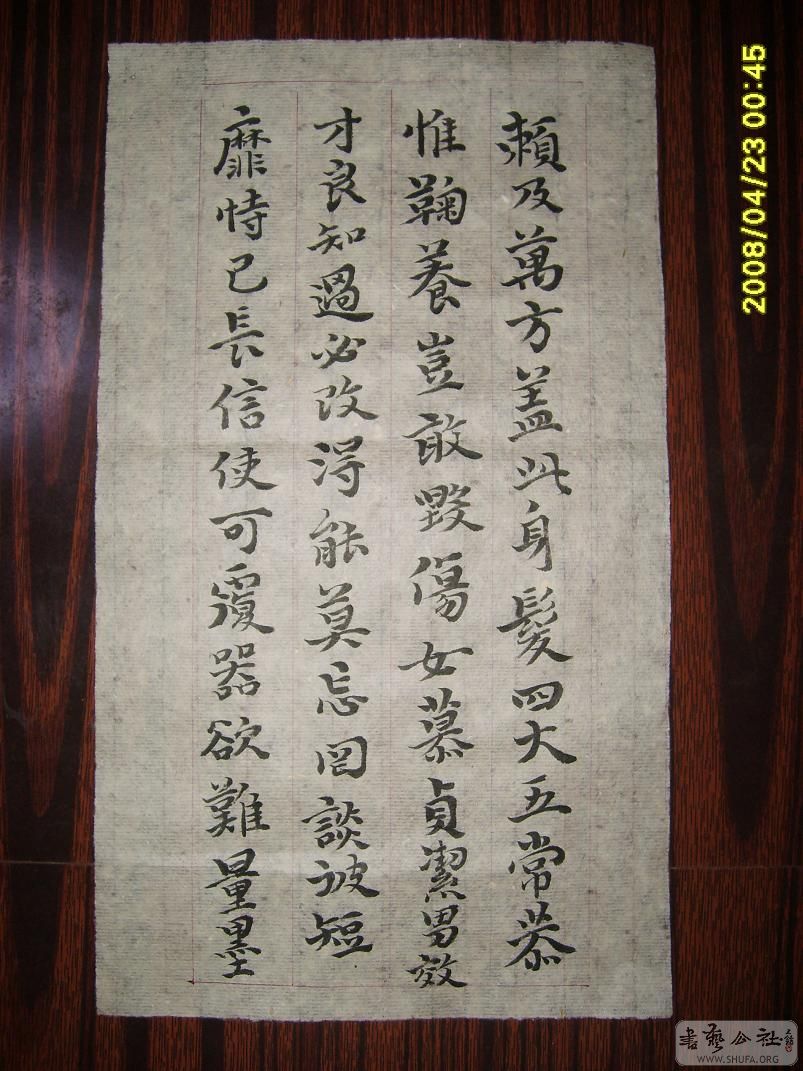 賴及萬方蓋此身髮四大五常恭
惟鞠養豈敢毀傷女慕貞潔男效
才良知過必改得能莫忘罔談彼短
靡恃己長信使可覆器欲難量墨
2008/04/23 00:45
書藝公社
WWW.SHUFA.ORG